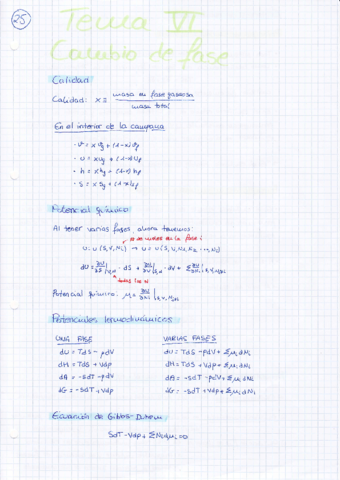 25
Tema VI
Cambio de fase
Calidad
Calidad: x ≡ masa en fase gaseosa / masa total
En el interior de la campana
· v = x vg + (1-x) vf
· u = x ug + (1-x) uf
· h = x hg + (1-x) hf
· s = x sg + (1-x) sf
Potencial químico
Al tener varias fases ahora tenemos:
nº de moles de la fase i
U: U(S,V,Ni) → U = U(S,V,N1,N2,...,Nn)
dU = ∂U/∂S|V,Ni · dS + ∂U/∂V|S,Ni · dV + Σ ∂U/∂Ni|S,V,Nj≠i
todos los Ni
Potencial químico: μi = ∂U/∂Ni|S,V,Nj≠i
Potenciales termodinámicos
UNA FASE
dU = TdS - pdV
dH = TdS + Vdp
dA = -SdT - pdV
dG = -SdT + Vdp
VARIAS FASES
dU = TdS - pdV + Σ μi dNi
dH = TdS + Vdp + Σ μi dNi
dA = -SdT - pdV + Σ μi dNi
dG = -SdT + Vdp + Σ μi dNi
Ecuación de Gibbs-Duhem
SdT - Vdp + Σ Ni dμi = 0